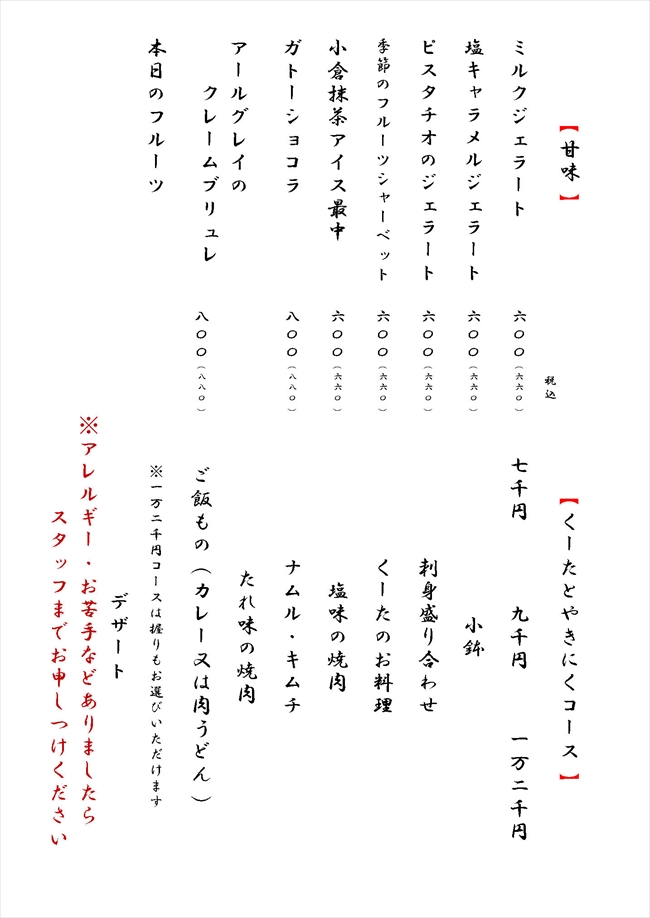 【甘味】
税込
ミルクジェラート 六〇〇(六六〇)
塩キャラメルジェラート 六〇〇(六六〇)
ピスタチオのジェラート 六〇〇(六六〇)
季節のフルーツシャーベット 六〇〇(六六〇)
小倉抹茶アイス最中 六〇〇(六六〇)
ガトーショコラ 八〇〇(八八〇)
アールグレイの
クレームブリュレ 八〇〇(八八〇)
本日のフルーツ
【くーたとやきにくコース】
七千円 九千円 一万二千円
小鉢
刺身盛り合わせ
くーたのお料理
塩味の焼肉
ナムル・キムチ
たれ味の焼肉
ご飯もの(カレー又は肉うどん)
※一万二千円コースは握りもお選びいただけます
デザート
※アレルギー・お苦手などありましたら
スタッフまでお申しつけください